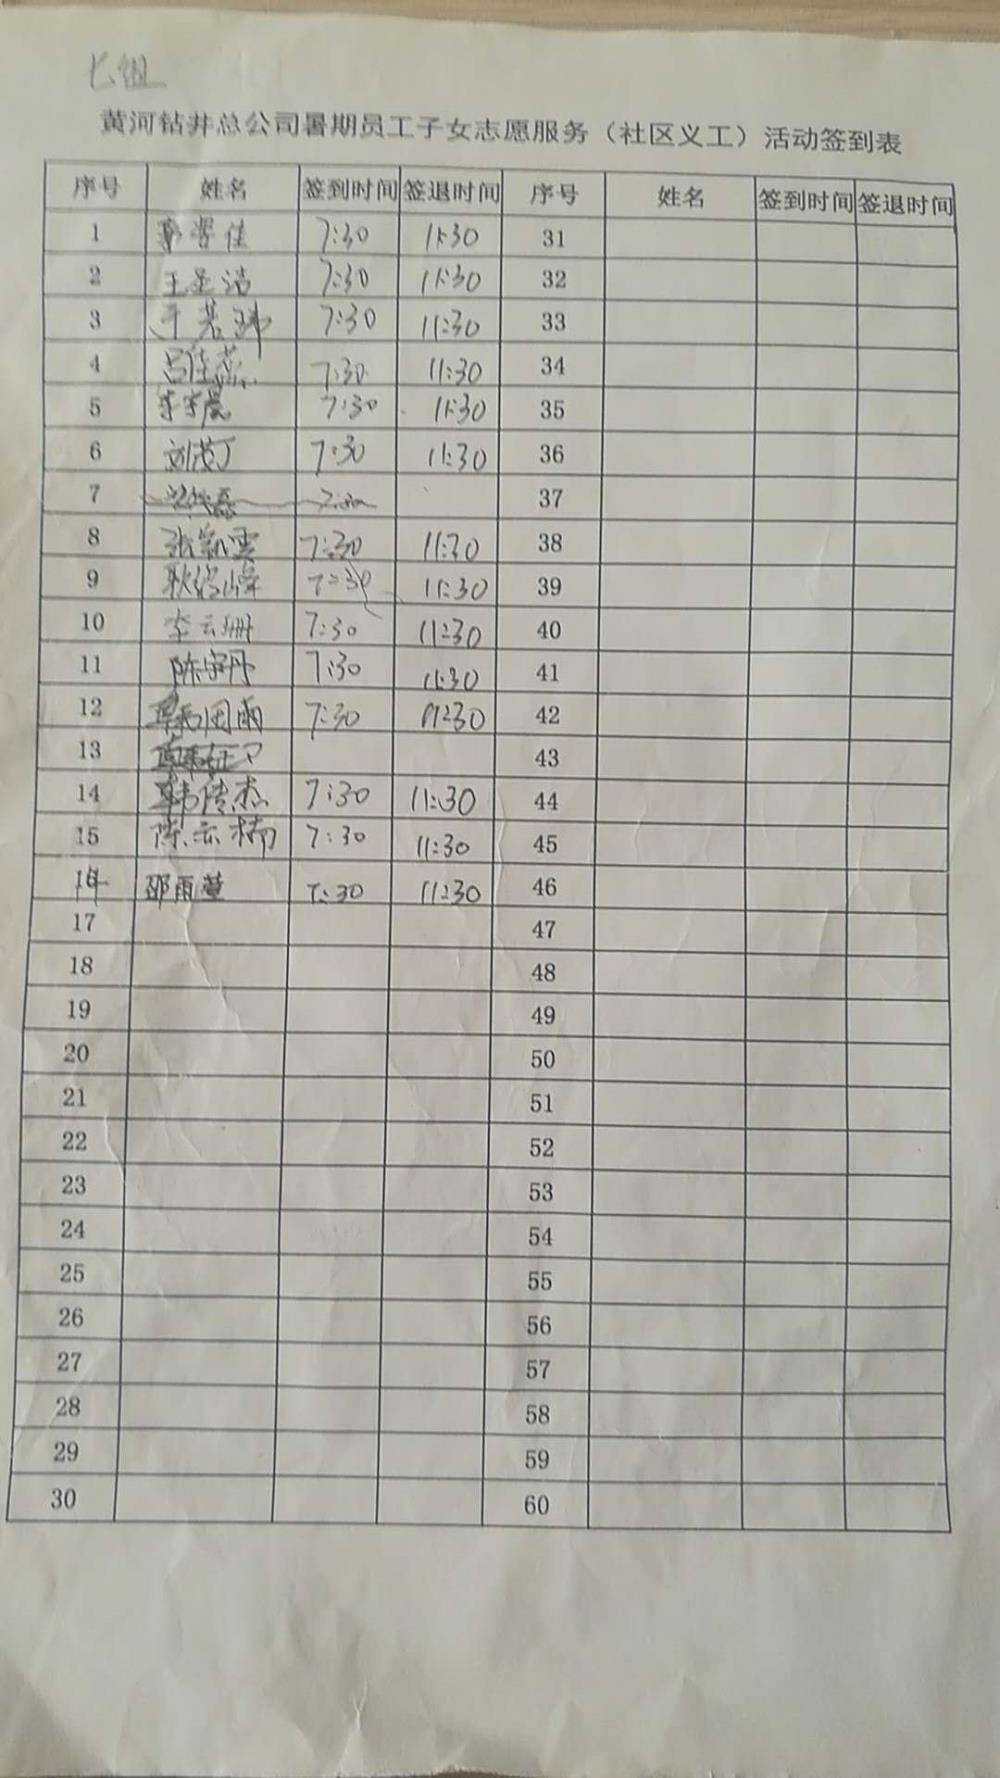 七组
黄河钻井总公司暑期员工子女志愿服务（社区义工）活动签到表
序号 姓名 签到时间 签退时间 序号 姓名 签到时间 签退时间
1 佳 7:30 11:30 31
2 王圣洁 7:30 11:30 32
3 于若 7:30 11:30 33
4 吕佳燕 7:30 11:30 34
5 李宇晨 7:30 11:30 35
6 刘茂丁 7:30 11:30 36
7 7:30 37
8 张凯雯 7:30 11:30 38
9 耿铭峰 7:30 11:30 39
10 李云珊 7:30 11:30 40
11 陈宇丹 7:30 11:30 41
12 雨 7:30 11:30 42
13 43
14 韩传杰 7:30 11:30 44
15 陈示楠 7:30 11:30 45
16 邵雨萱 7:30 11:30 46
17 47
18 48
19 49
20 50
21 51
22 52
23 53
24 54
25 55
26 56
27 57
28 58
29 59
30 60